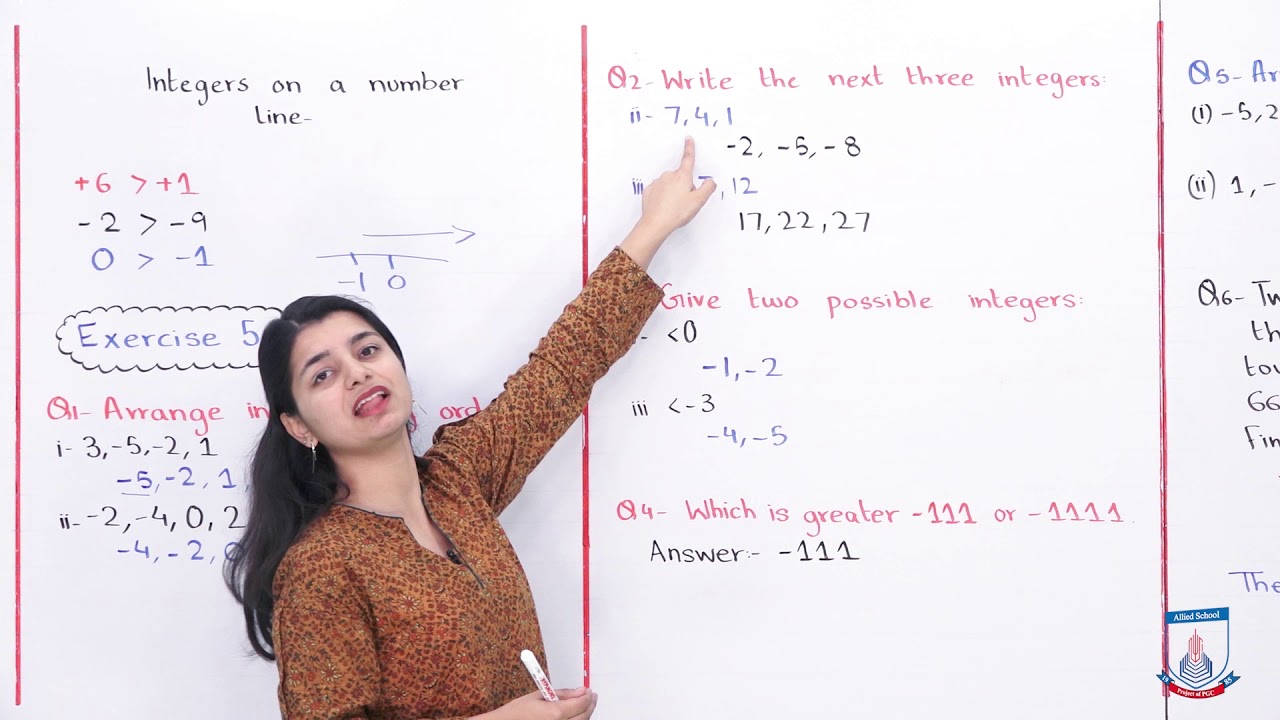 Integers on a number
line-
+6 > +1
-2 > -9
0 > -1
-1 0
Exercise 5
Q1- Arrange in
i- 3,-5,-2, 1
-5,-2, 1,
ii- -2,-4, 0, 2
-4,-2,
Q2- Write the next three integers:
ii- 7,4,1
-2, -5, -8
iii , 12
17, 22, 27
Give two possible integers:
<0
-1, -2
iii <-3
-4, -5
Q4- Which is greater -111 or -1111.
Answer:- -111
Q5- Ar
(i) -5, 2
(ii) 1, -
Q6- Tw
th
tow
66
Fin
The
Allied School
19 85
Project of PGC